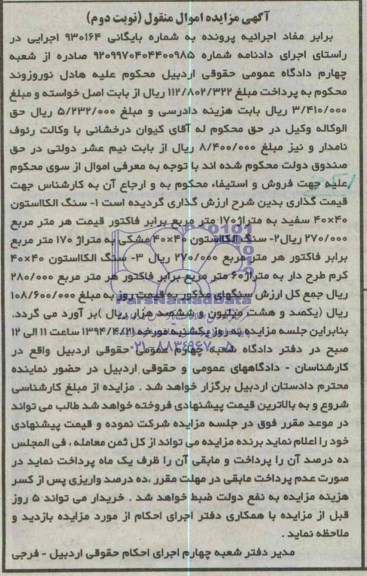 آگهی مزایده اموال منقول (نوبت دوم)
برابر مفاد اجرائیه پرونده به شماره بایگانی ۹۳۰۱۶۴ اجرایی در
راستای اجرای دادنامه شماره ۹۲۰۹۹۷۰۴۰۴۴۰۰۹۸۵ صادره از شعبه
چهارم دادگاه عمومی حقوقی اردبیل محکوم علیه هادل نوروزوند
محکوم به پرداخت مبلغ ۱۱۲/۸۰۲/۳۲۲ ریال از بابت اصل خواسته و مبلغ
۳/۴۱۰/۰۰۰ ریال بابت هزینه دادرسی و مبلغ ۵/۲۳۲/۰۰۰ ریال حق
الوکاله وکیل در حق محکوم له آقای کیوان درخشانی با وکالت رئوف
نامدار و نیز مبلغ ۸/۴۰۰/۰۰۰ ریال از بابت نیم عشر دولتی در حق
صندوق دولت محکوم شده اند با توجه به معرفی اموال از سوی محکوم
علیه جهت فروش و استیفاء محکوم به و ارجاع آن به کارشناس جهت
قیمت گذاری بدین شرح ارزش گذاری گردیده است ۱- سنگ الکااستون
۴۰×۴۰ سفید به متراژ ۱۷۰ متر مربع برابر فاکتور قیمت هر متر مربع
۲۷۰/۰۰۰ ریال ۲- سنگ الکااستون ۴۰×۴۰ مشکی به متراژ ۱۷۰ متر مربع
برابر فاکتور هر متر مربع ۲۷۰/۰۰۰ ریال ۳- سنگ الکااستون ۴۰×۴۰
کرم طرح دار به متراژ ۶۰ متر مربع برابر فاکتور هر متر مربع ۲۸۰/۰۰۰
ریال جمع کل ارزش سنگهای مذکور به قیمت روز به مبلغ ۱۰۸/۶۰۰/۰۰۰
ریال (یکصد و هشت میلیون و ششصد هزار ریال) بر آورد می گردد.
بنابراین جلسه مزایده به روز یکشنبه مورخه ۱۳۹۴/۴/۲۱ ساعت ۱۱ الی ۱۲
صبح در دفتر دادگاه شعبه چهارم عمومی حقوقی اردبیل واقع در
کارشناسان - دادگاههای عمومی و حقوقی اردبیل در حضور نماینده
محترم دادستان اردبیل برگزار خواهد شد . مزایده از مبلغ کارشناسی
شروع و به بالاترین قیمت پیشنهادی فروخته خواهد شد طالب می تواند
در موعد مقرر فوق در جلسه مزایده شرکت نموده و قیمت پیشنهادی
خود را اعلام نماید برنده مزایده می تواند از کل ثمن معامله ، فی المجلس
ده درصد آن را پرداخت و مابقی آن را ظرف یک ماه پرداخت نماید در
صورت عدم پرداخت مابقی در مهلت مقرر ،ده درصد واریزی پس از کسر
هزینه مزایده به نفع دولت ضبط خواهد شد . خریدار می تواند ۵ روز
قبل از مزایده با همکاری دفتر اجرای احکام از مورد مزایده بازدید و
ملاحظه نماید .
مدیر دفتر شعبه چهارم اجرای احکام حقوقی اردبیل - فرجی
ParsNamadData